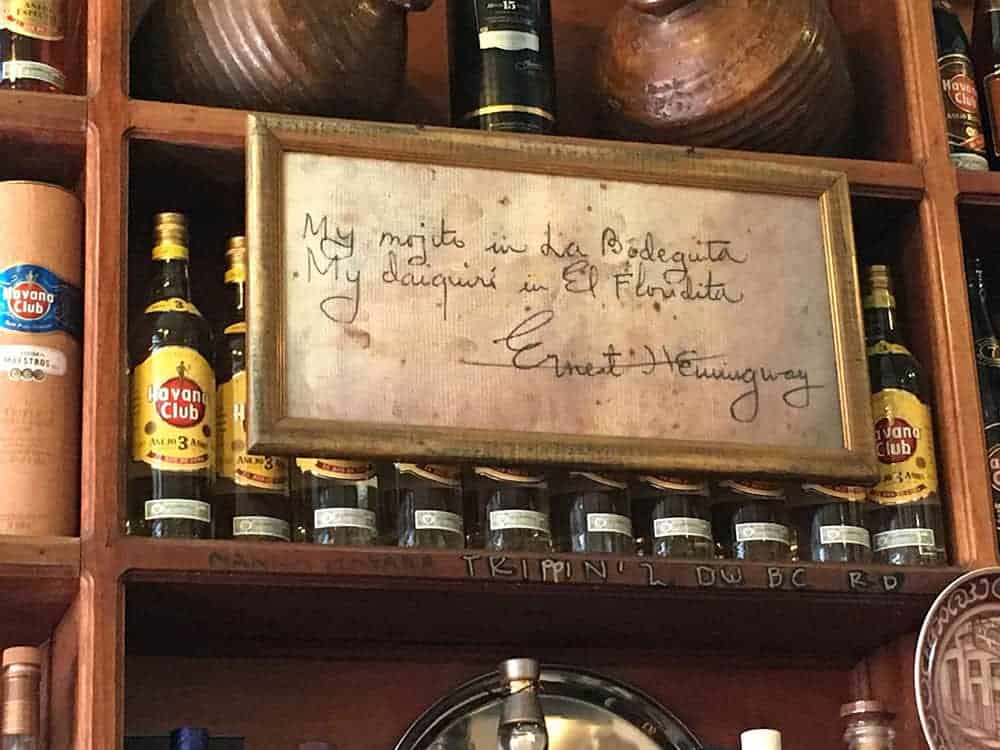 AÑEJO
ESPECIAL
15
Havana
Club
Havana
Club
MAESTROS
My mojito in La Bodeguita
My daiquirí in El Floridita
Ernest Hemingway
3
Havana
Club
AÑEJO 3 AÑOS
Havana
Club
3 AÑOS
TRIPPIN' 2 DW BC RD